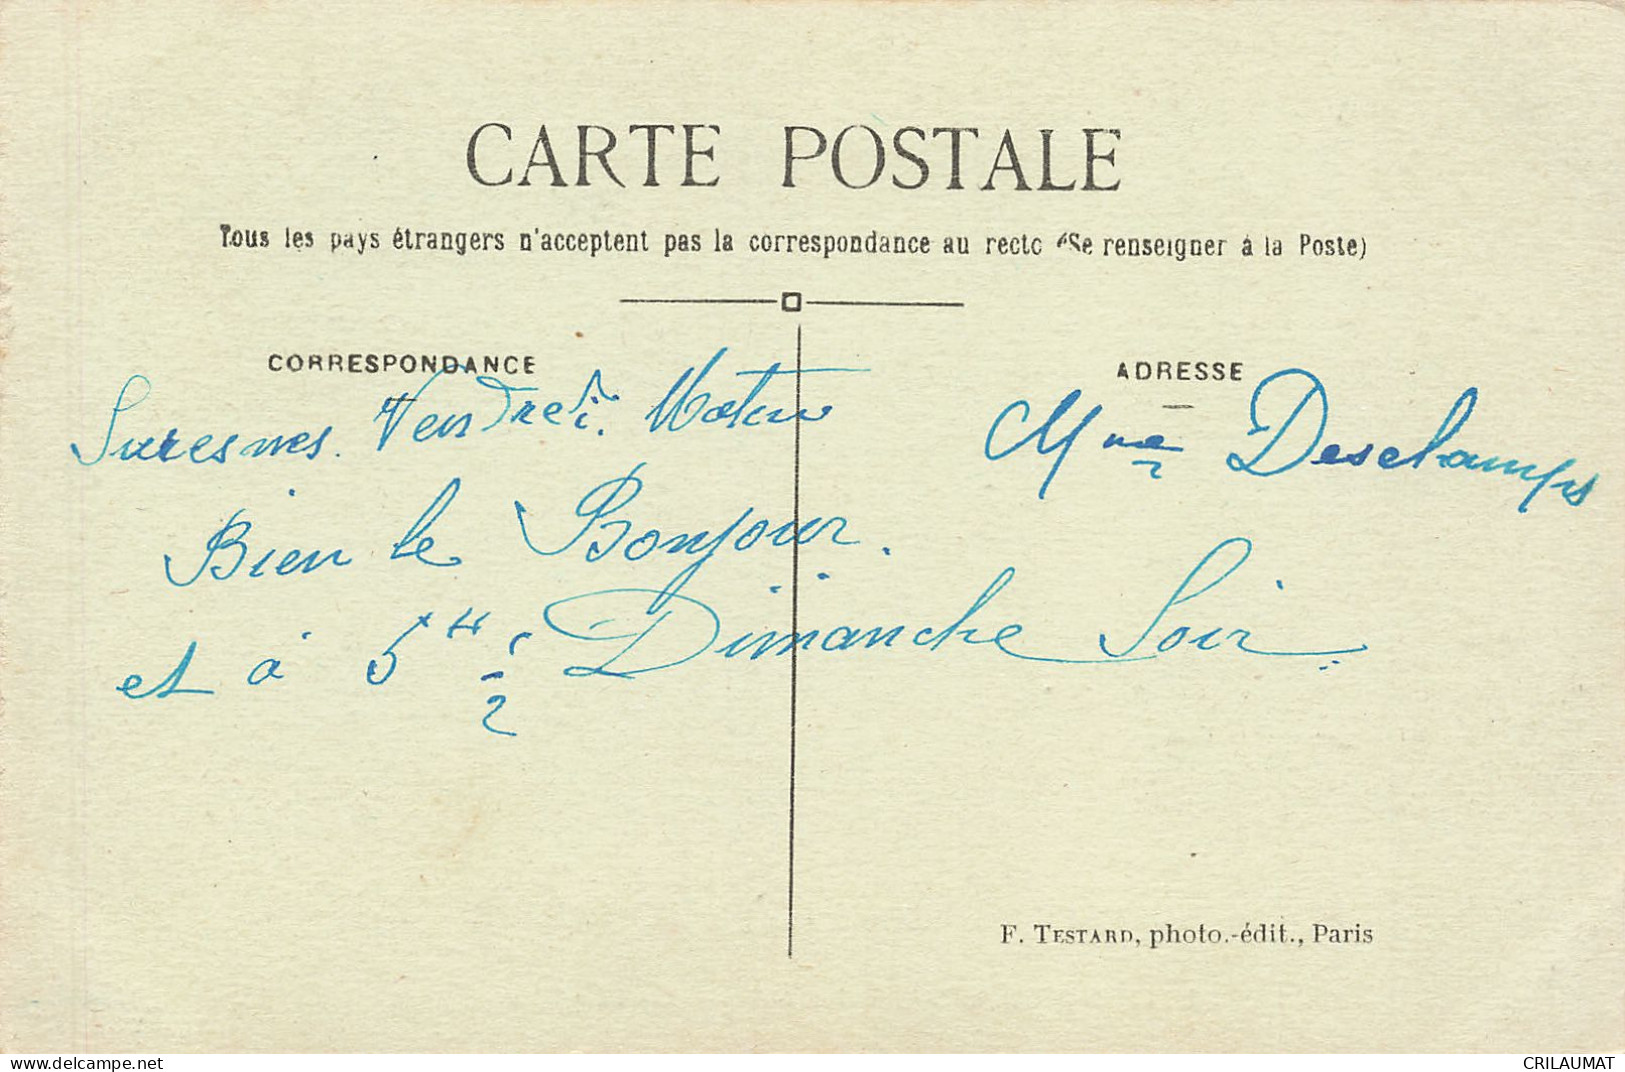 CARTE POSTALE
Tous les pays étrangers n'acceptent pas la correspondance au recto (Se renseigner à la Poste)
CORRESPONDANCE
ADRESSE
Suresnes. Vendredi. Matin
Mme Deschamps
Bien le Bonjour.
et à 5H 1/2 Dimanche Soir..
F. TESTARD, photo.-édit., Paris
www.delcampe.net
CRILAUMAT